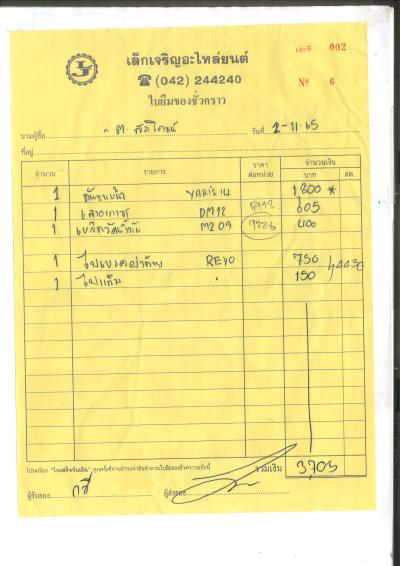 เล็กเจริญอะไหล่ยนต์
เลขที่ 002
☎ (042) 244240
Nº 6
ใบยืมของชั่วคราว
นามผู้ซื้อ วันที่ 2-11-65
ที่อยู่
จำนวน รายการ ราคาต่อหน่วย จำนวนเงิน บาท สต.
1 กันชนหน้า YARIS 14 1800 *
1 DM12 605
1 M209 9226 400
1 ไฟเบรคฝาท้าย REVO 750
1 ไฟแก้ม 150
โปรดเรียก "ใบเสร็จรับเงิน" ทุกครั้งที่ท่านชำระค่าสินค้าตามใบยืมของชั่วคราวฉบับนี้ รวมเงิน 3705
ผู้รับของ ผู้ส่งของ